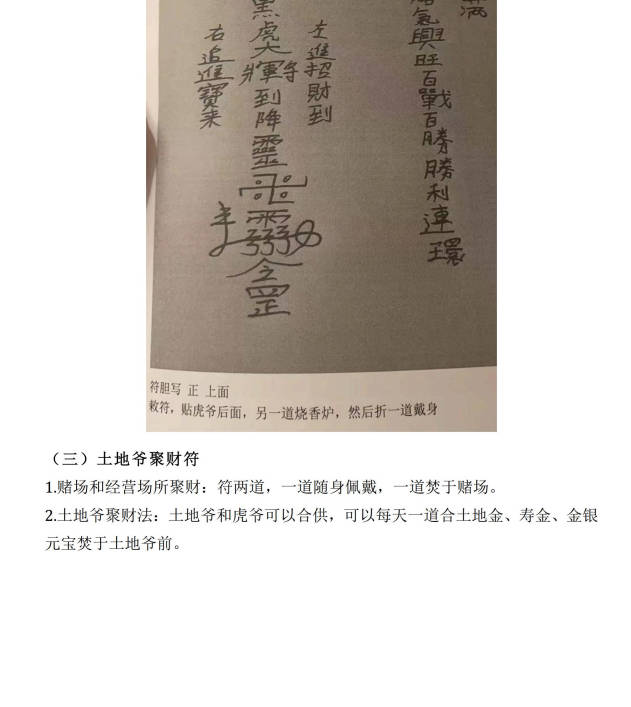 满
氣興旺百戰百勝勝利連環
左進招財到
黑虎大將軍到降靈
罡
右追進寶来
符胆写 正 上面
敕符，贴虎爷后面，另一道烧香炉，然后折一道戴身
（三）土地爷聚财符
1.赌场和经营场所聚财：符两道，一道随身佩戴，一道焚于赌场。
2.土地爷聚财法：土地爷和虎爷可以合供，可以每天一道合土地金、寿金、金银
元宝焚于土地爷前。